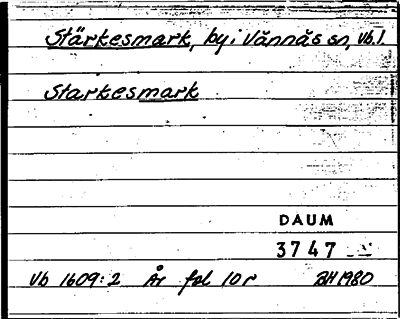 Stärkesmark, by i Vännäs sn, Vb.l.
Starkesmark
DAUM
3747
Vb 1609:2 År fol 10r BH 1980